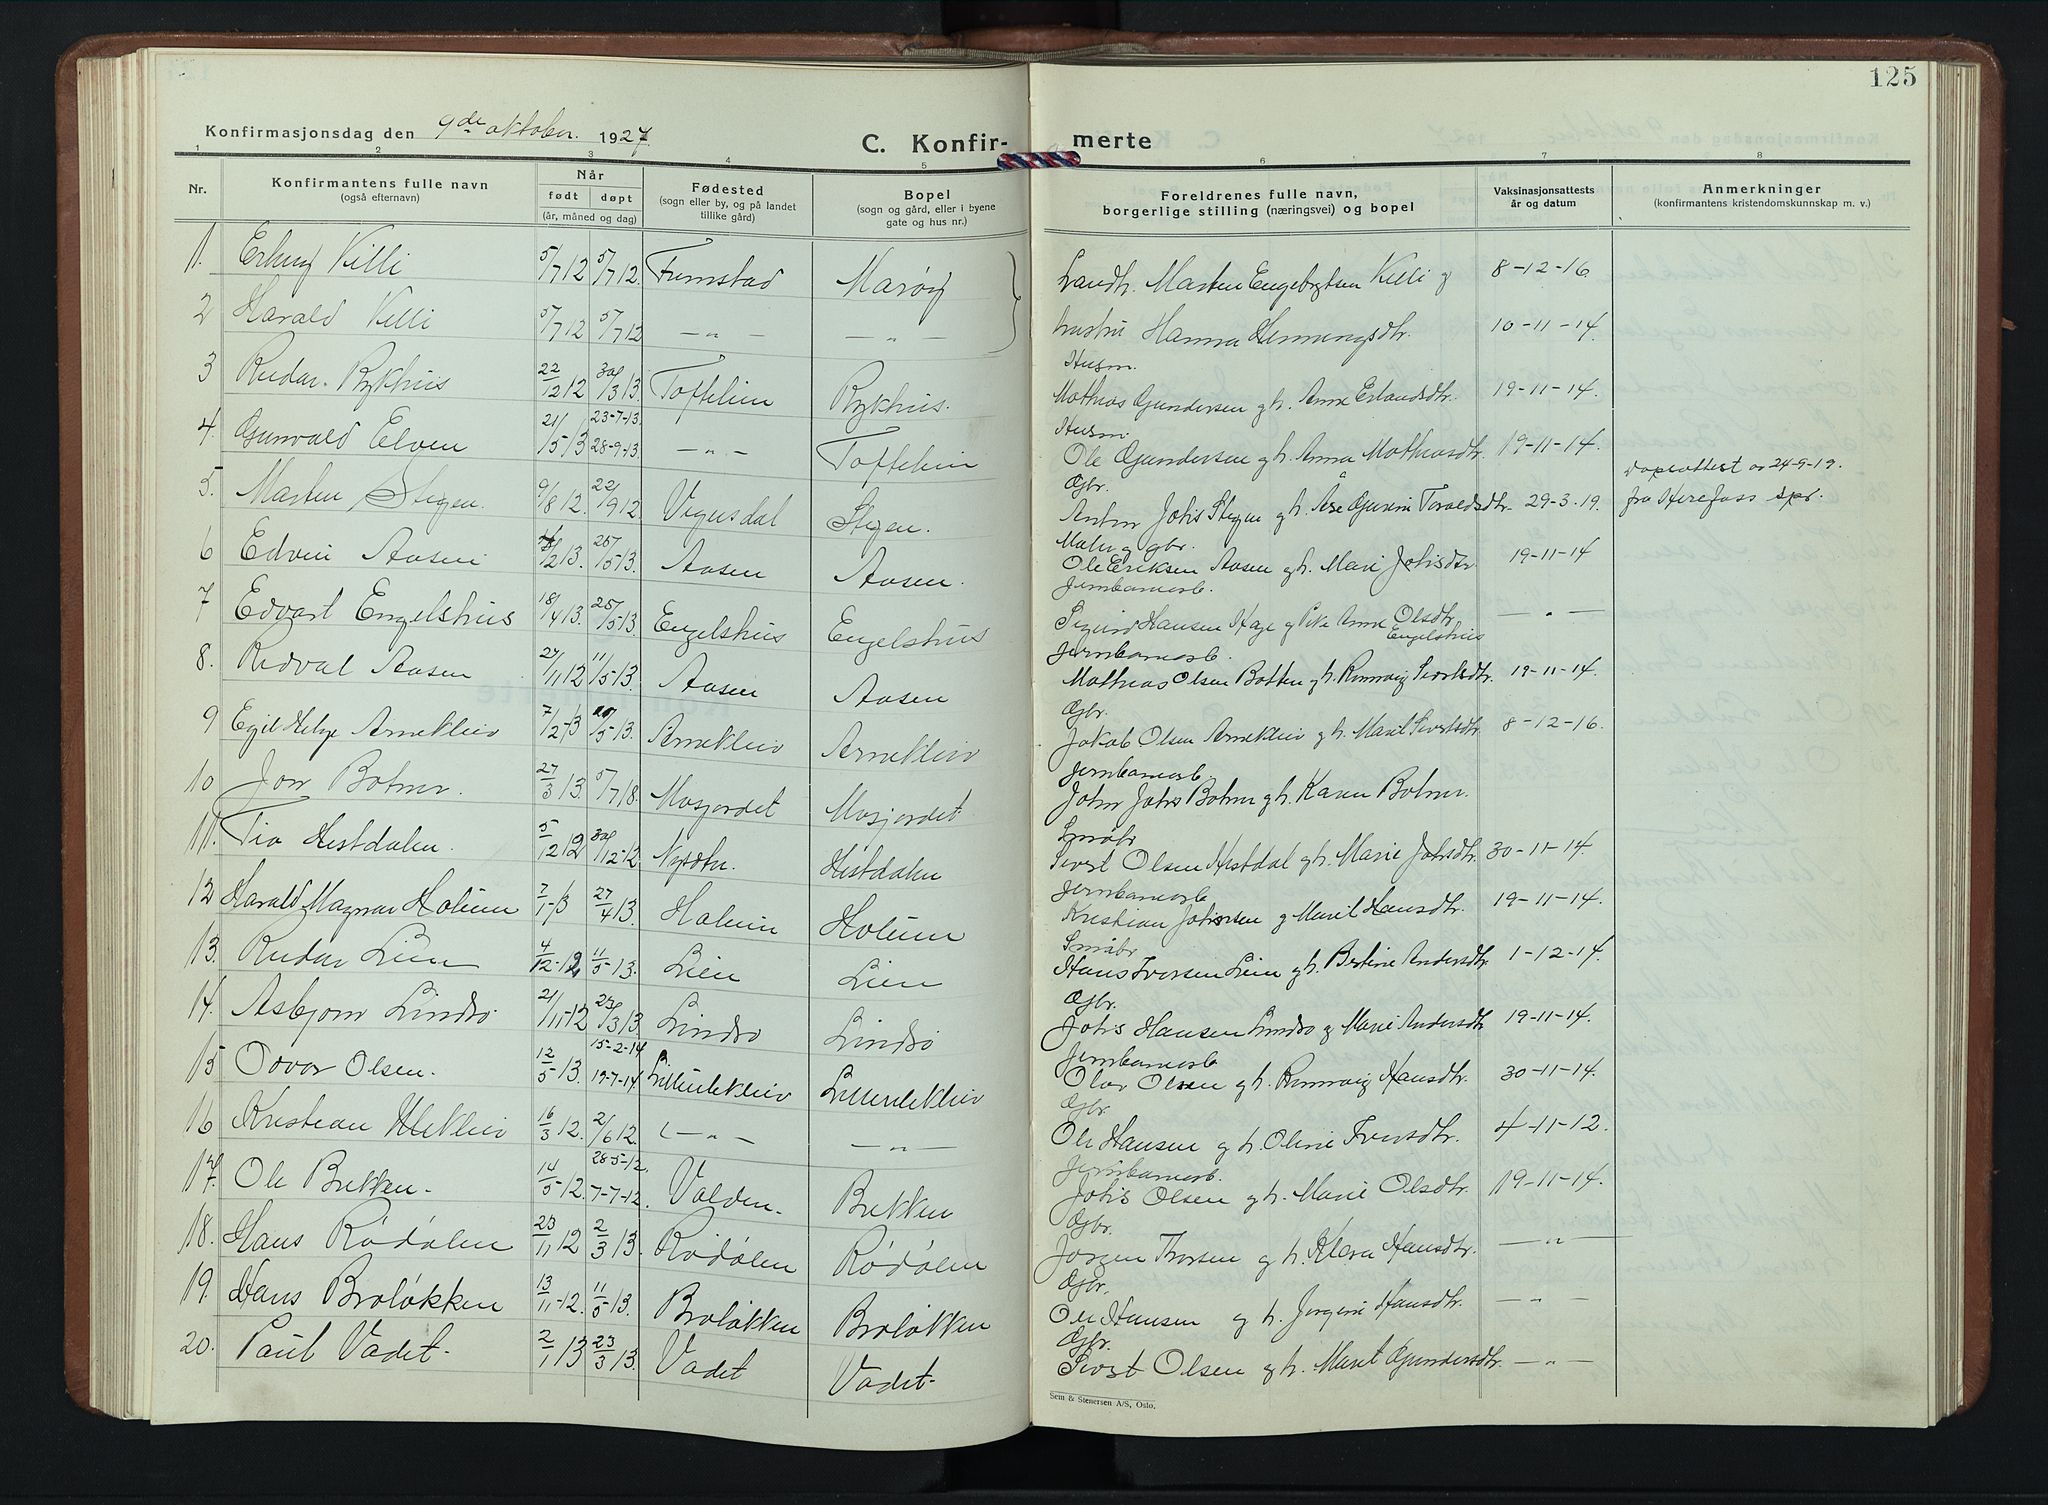 125
Konfirmasjonsdag den 9de oktober 1927
C. Konfir- merte
1 2 3 4 5 6 7 8
Nr.
Konfirmantens fulle navn (også efternavn)
Når født døpt (år, måned og dag)
Fødested (sogn eller by, og på landet tillike gård)
Bopel (sogn og gård, eller i byene gate og hus nr.)
Foreldrenes fulle navn, borgerlige stilling (næringsvei) og bopel
Vaksinasjonsattests år og datum
Anmerkninger (konfirmantens kristendomskunnskap m. v.)
1. Erling Killi 5/7 12 5/7 12. Marøy Landh. Marten Engebrgtsen Killi g 8-12-16.
2 Harald Killi 5/7 12 5/7 12 - " - - " - hustru Hanna Henningsdtr. 10-11-14.
Husm.
3 Reidar Rykhus 22/12 12 30/3 13. Toftelien Rykhus. Mathias Gundersen g h. Anne Erlandsdtr. 19-11-14.
Husm.
4. Gunvald Elven 21/5 13 23-7-13. 28-9-13 - " - Toftelien Ole Gundersen g h. Anna Mathiasdtr. 19-11-14.
Gbr.
5. Marten Stegen. 9/8 12. 22/9 12. Vegusdal Stegen. Anton Johs Stegen g h. Åse Gurine Toraldsdtr. 29-3-19. Dåpsattest av 24-9-19. fra Herefoss spr.
Maler g gbr.
6 Edvin Aasen /2 13. 25/5 13. Aasen Aasen. Ole Eriksen Aasen g h. Mari Johsdtr. 19-11-14
Jernbanearb.
7 Edvart Engelshus 18/4 13. 25/5 13. Engelshus Engelshus Sigurd Hansen Hage g Pike Anne Olsdtr. Engelshus - " -
Jernbanearb.
8. Reidval Aasen 27/11 12 11/5 13. Aasen Aasen Mathias Olsen Botten g h. Rønnaug Sivertsdtr. 19-11-14.
Gbr.
9 Egil Helge Arneklev 7/2 13 /5 13. Arneklev Arneklev Jakob Olsen Arneklev g h. Marit Sivertsdtr. 8-12-16.
Jernbanearb.
10 Jon Bolmer. 27/3 13 5/7 18. Mosjordet Mosjordet John Johs Bolmer g h. Karen Bolmer.
Småbr
11. Tia Hestdalen. 5/12 12 30/12-12 Hestdalen Sivert Olsen Hestdal g h. Marie Johsdtr. 30-11-14.
Jernbanearb
12 Harald Magnar Holum 7/1-13 27/4 13. Holum Holum Kristian Johnsen g Marit Hansdtr. 19-11-14.
Småbr
13. Reidar Lien 4/12-12 11/5-13. Lien Lien Hans Iversen Lien g h. Bertine Andersdtr. 1-12-14.
Gbr.
14. Asbjørn Lindsø 21/11-12 23/3 13. Lindsø Lindsø Johs Hansen Lindsø g Marie Andersdtr 19-11-14.
Jernbanearb
15 Odvar Olsen. 12/5 13. 15-2-14 19-7-14 Lilleukleiv Lilleukleiv Olav Olsen g h. Rønnaug Hansdtr. 30-11-14.
Gbr
16 Kristian Ukleiv 16/3 12. 2/6 12. - " - - " - Ole Hansen g h. Oline Iversdtr. 4-11-12.
Jernbanearb.
17. Ole Brekken. 14/5 12. 28-5-12. 7-7-12. Volden. Brekken Johs Olsen g h. Marie Olsdtr. 19-11-14.
Gbr.
18. Hans Rødølen 23/11 12 2/3 13. Rødølen Rødølen Jørgen Iversen g h. Klara Hansdtr. - " -
Gbr.
19. Hans Broløkken 13/11-12. 11/5-13. Broløkken Broløkken Ole Hansen g h. Jørgine Hansdtr. - " -
Gbr.
20. Paul Vadet. 2/1 13 23/3 13. Vadet Vadet. Sivert Olsen g h. Marit Gundersdtr. - " -
Sem & Stenersen A/S, Oslo.